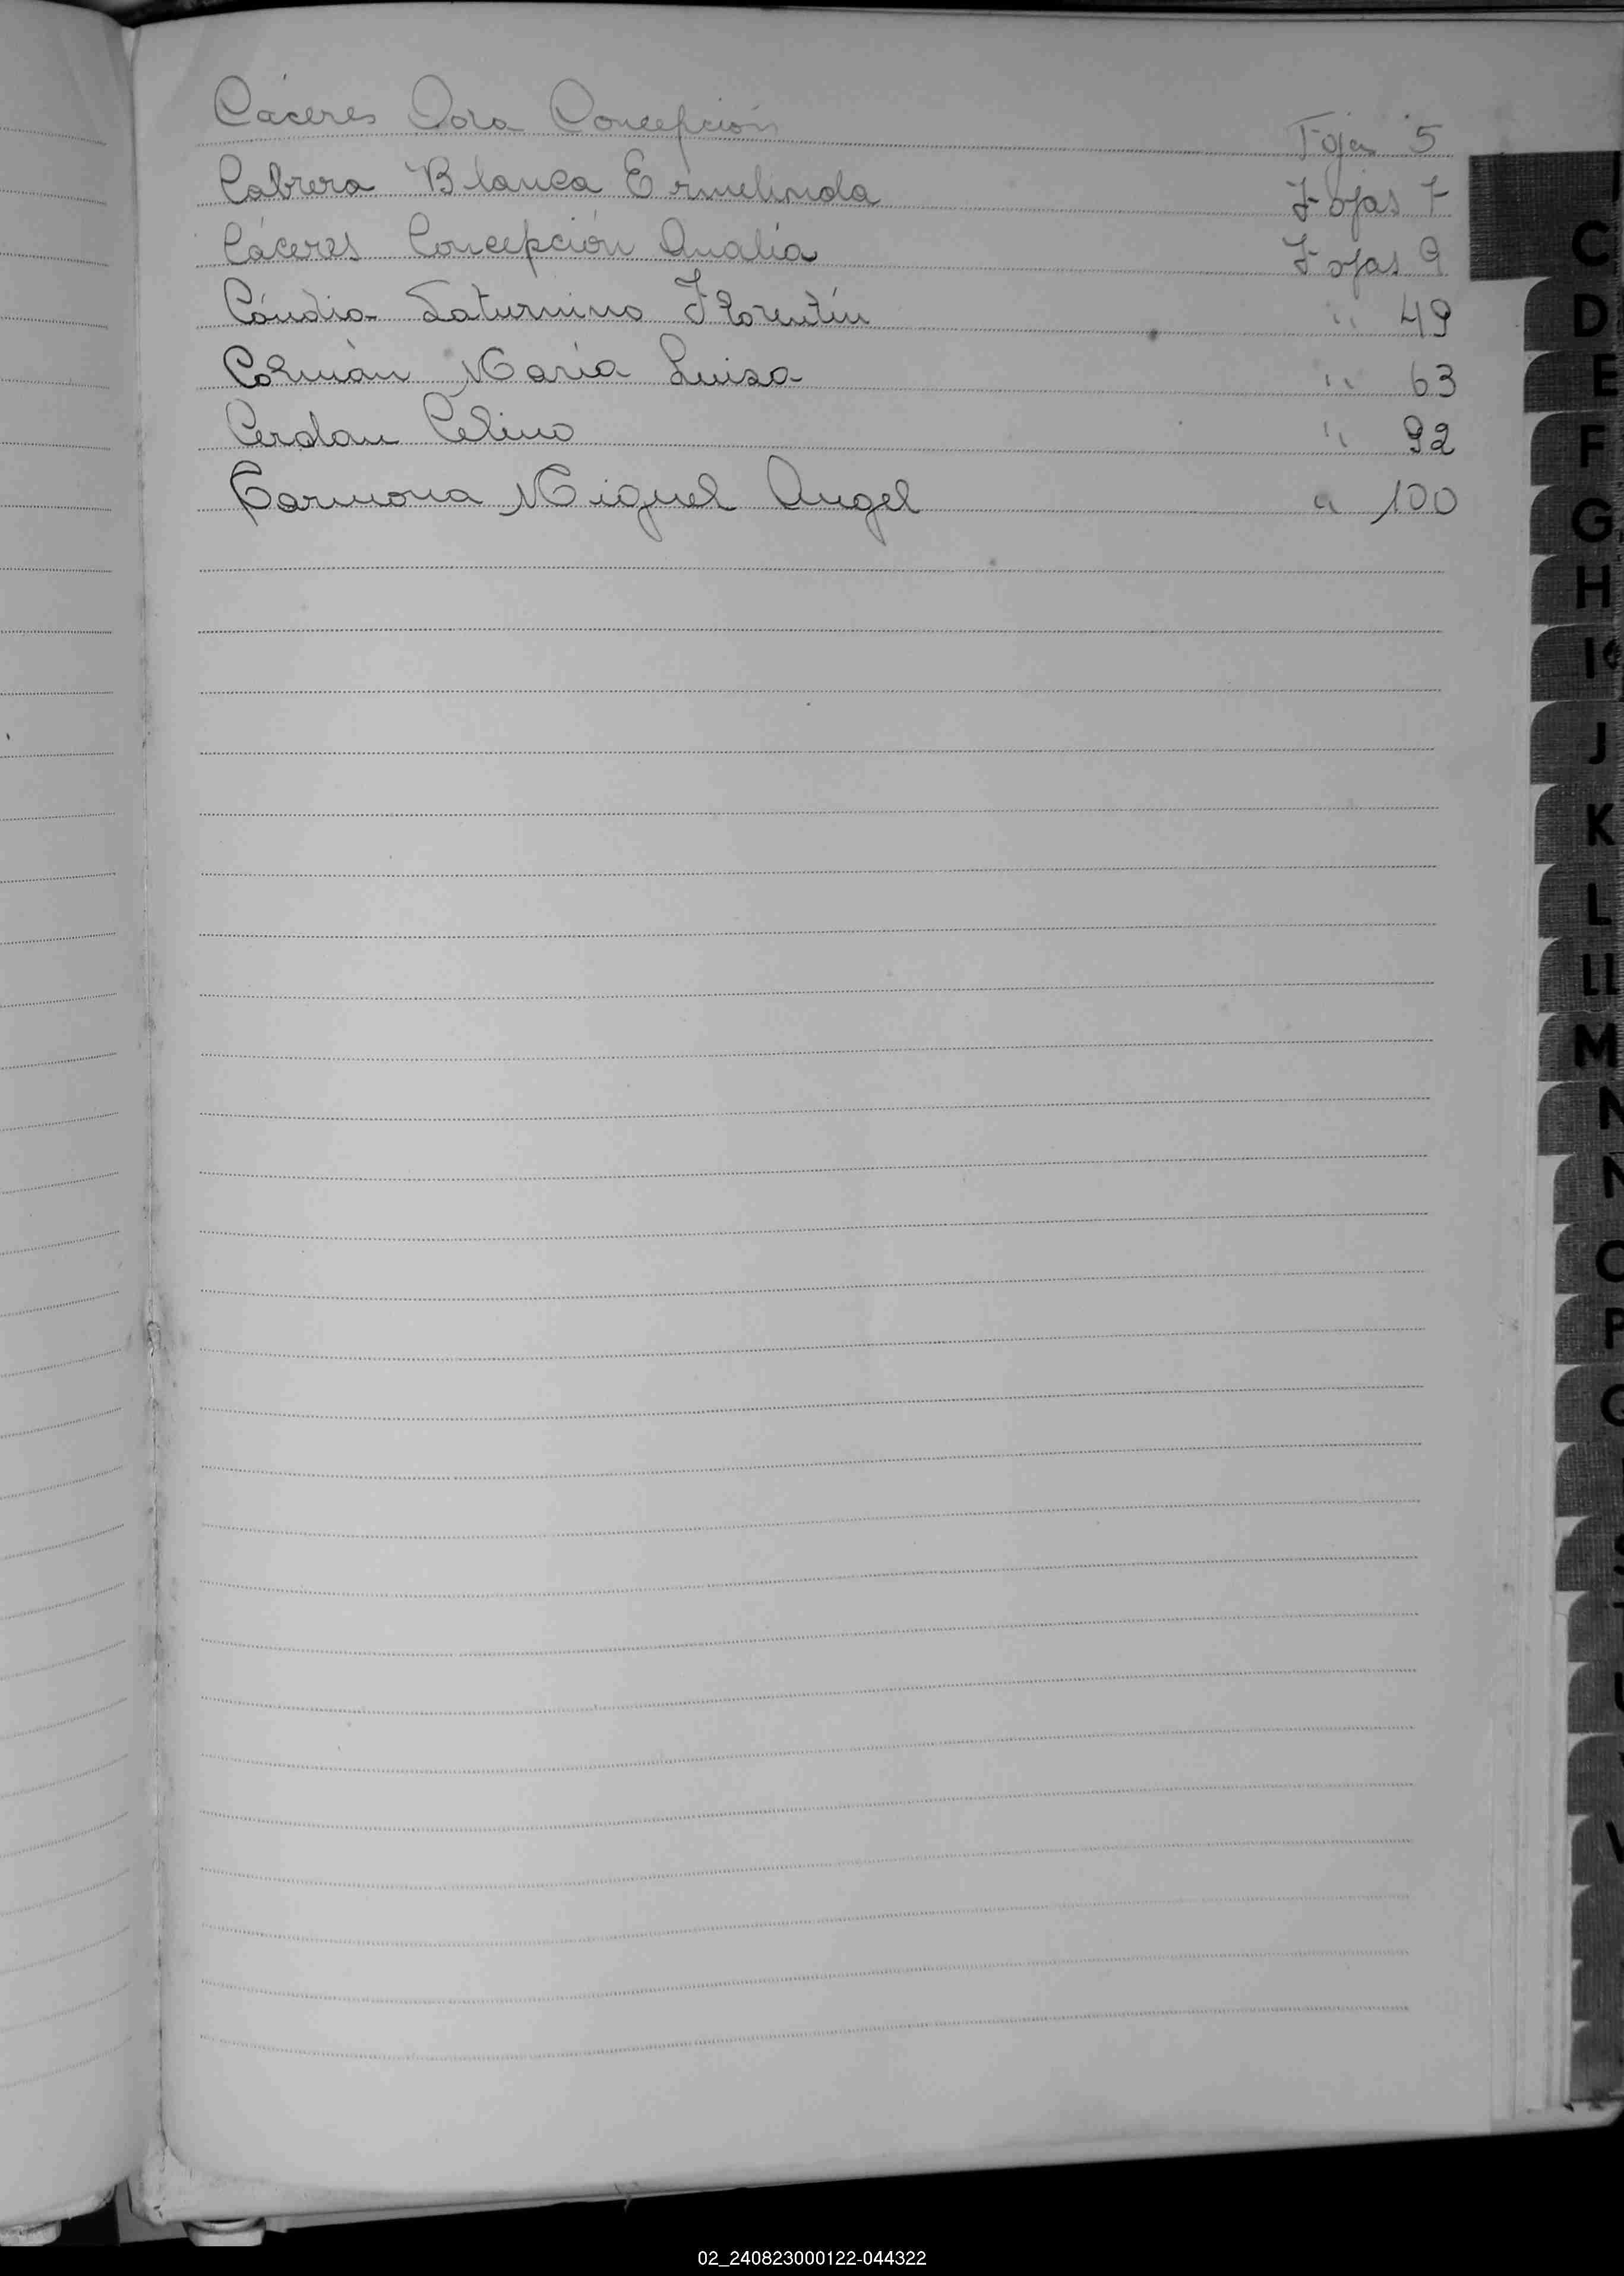 Cáceres Dora Concepción Foja 5
Cabrera Blanca Ermelinda Fojas 7
Cáceres Concepción Analía Fojas 9
Candia Saturnino Florentín " 49
Colmán María Luisa " 63
Cerdan Celino " 92
Carmona Miguel Angel " 100
C
D
E
F
G
H
I
J
K
L
LL
M
N
O
P
Q
02_240823000122-044322